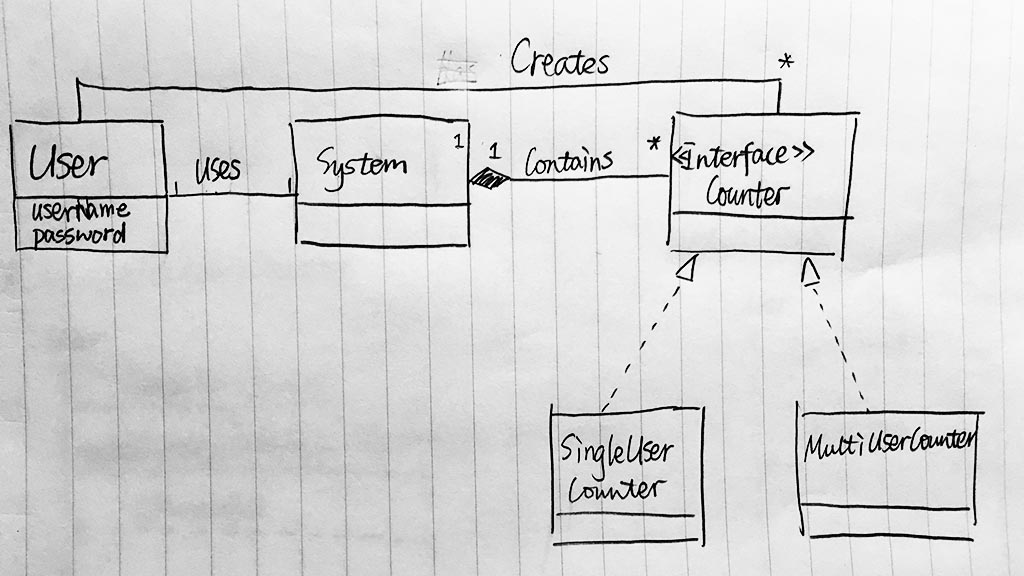 Creates *
User
userName
password
uses
System 1
1 Contains *
<<Interface>>
Counter
SingleUser
Counter
MultiUserCounter